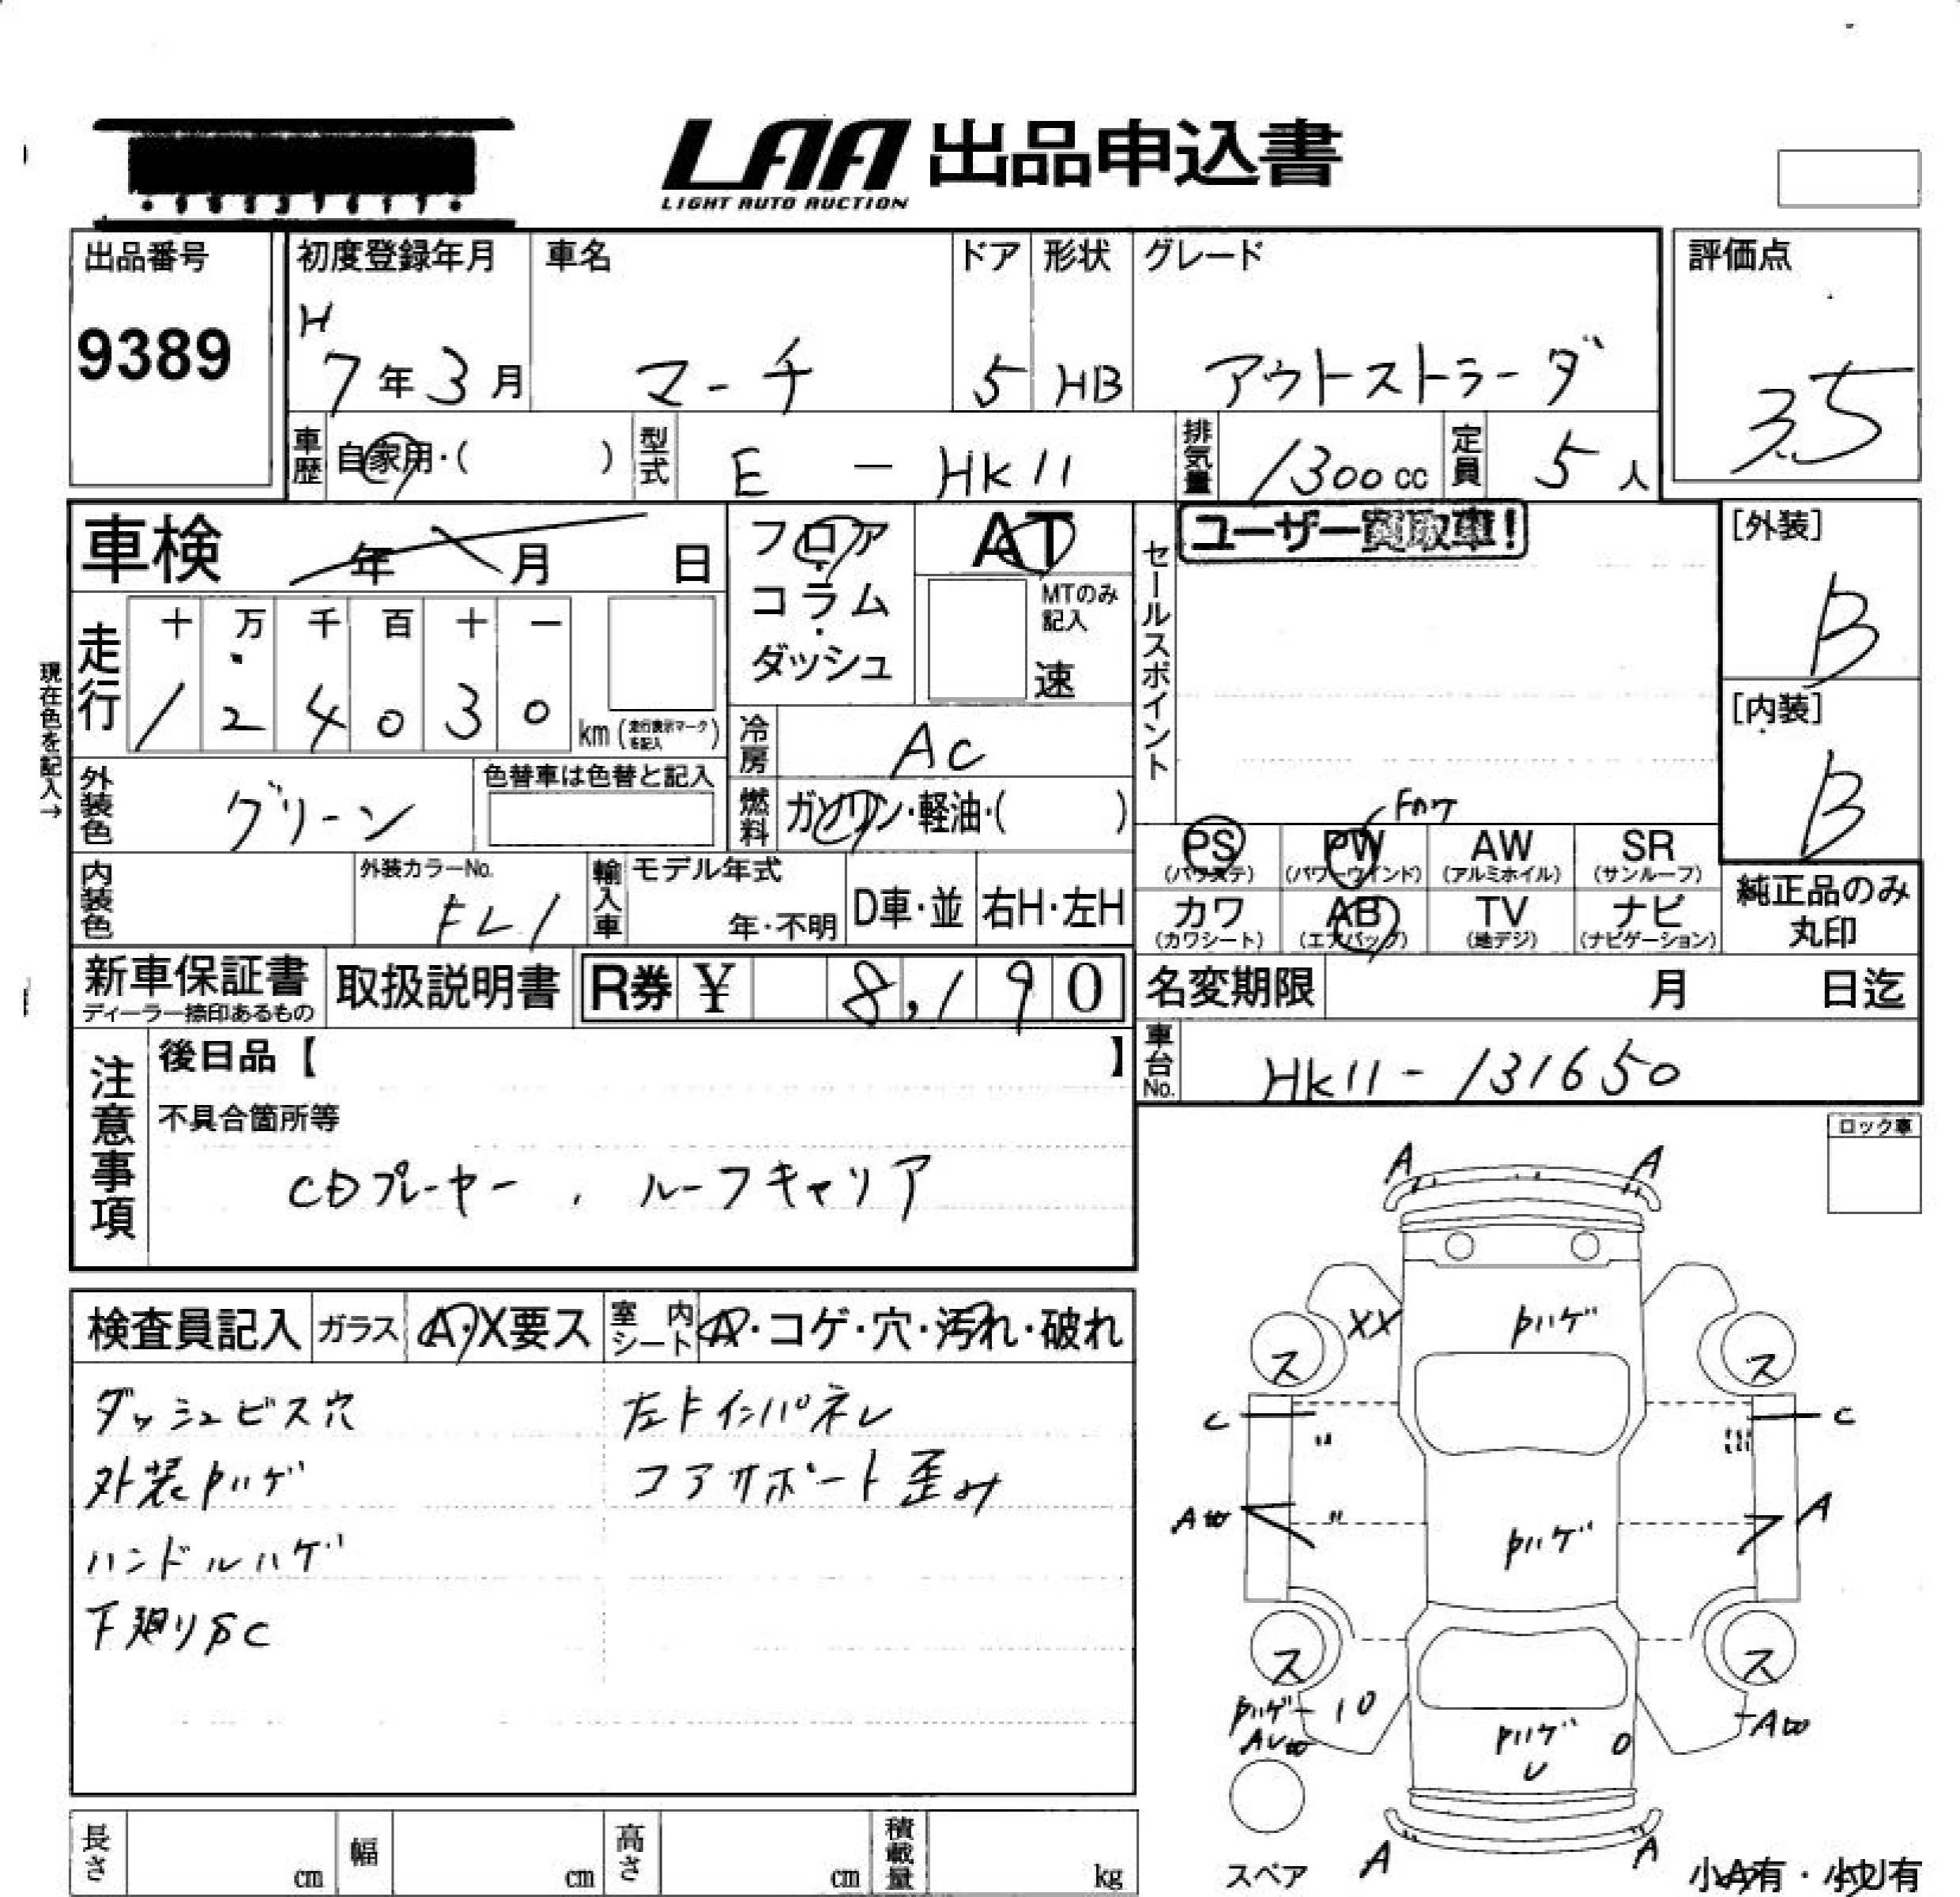 LAA 出品申込書
LIGHT AUTO AUCTION
出品番号
9389
初度登録年月
H
7年3月
車名
マーチ
ドア
5
形状
HB
グレード
アウトストラーダ
評価点
3.5
車歴
自家用・( )
型式
E - HK11
排気量
1300cc
定員
5人
車検
年 月 日
フロア・コラム・ダッシュ
AT
MTのみ記入
速
セールスポイント
ユーザー買取車!
[外装]
B
[内装]
B
現在色を記入→
走行
十 万 千 百 十 一
1 2 4 0 3 0
km (走行表示マークを記入)
冷房
AC
外装色
グリーン
色替車は色替と記入
燃料
ガソリン・軽油・( )
Fのケ
PS (パワステ)
PW (パワーウインド)
AW (アルミホイル)
SR (サンルーフ)
カワ (カワシート)
AB (エアバッグ)
TV (地デジ)
ナビ (ナビゲーション)
純正品のみ丸印
内装色
外装カラーNo.
FL1
輸入車
モデル年式
年・不明
D車・並
右H・左H
新車保証書
ディーラー捺印あるもの
取扱説明書
R券 ¥ 8,190
名変期限
月 日迄
車台No.
HK11-131650
注意事項
後日品【 】
不具合箇所等
CDプレーヤー , ルーフキャリア
ロック車
検査員記入
ガラス
A・X要ス
室内シート
A・コゲ・穴・汚れ・破れ
ダッシュビス穴
外装Pハゲ
ハンドルハゲ
下廻りSC
左Fインパネル
コアサポート歪み
A A
XX
Pハゲ
ス ス
C C
〃
A凹
〃
Pハゲ
A
ス ス
Pハゲ
10
AU凹
Pハゲ
U
0
A凹
スペア
A A
小A有・小U有
長さ
cm
幅
cm
高さ
cm
積載量
kg